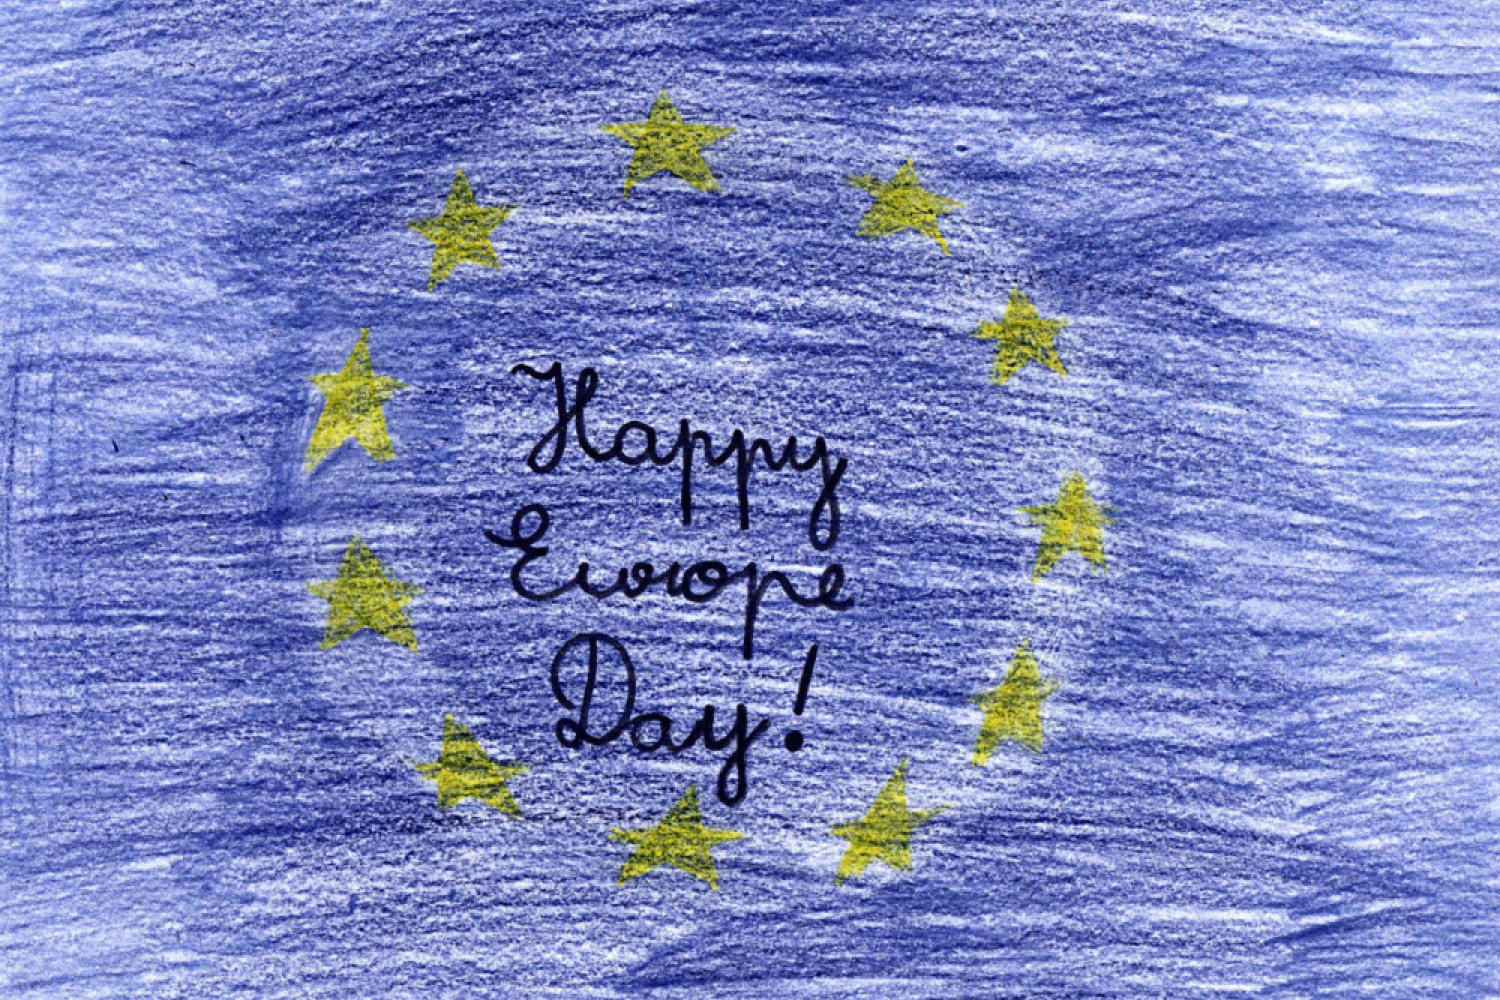 Happy
Europe
Day!